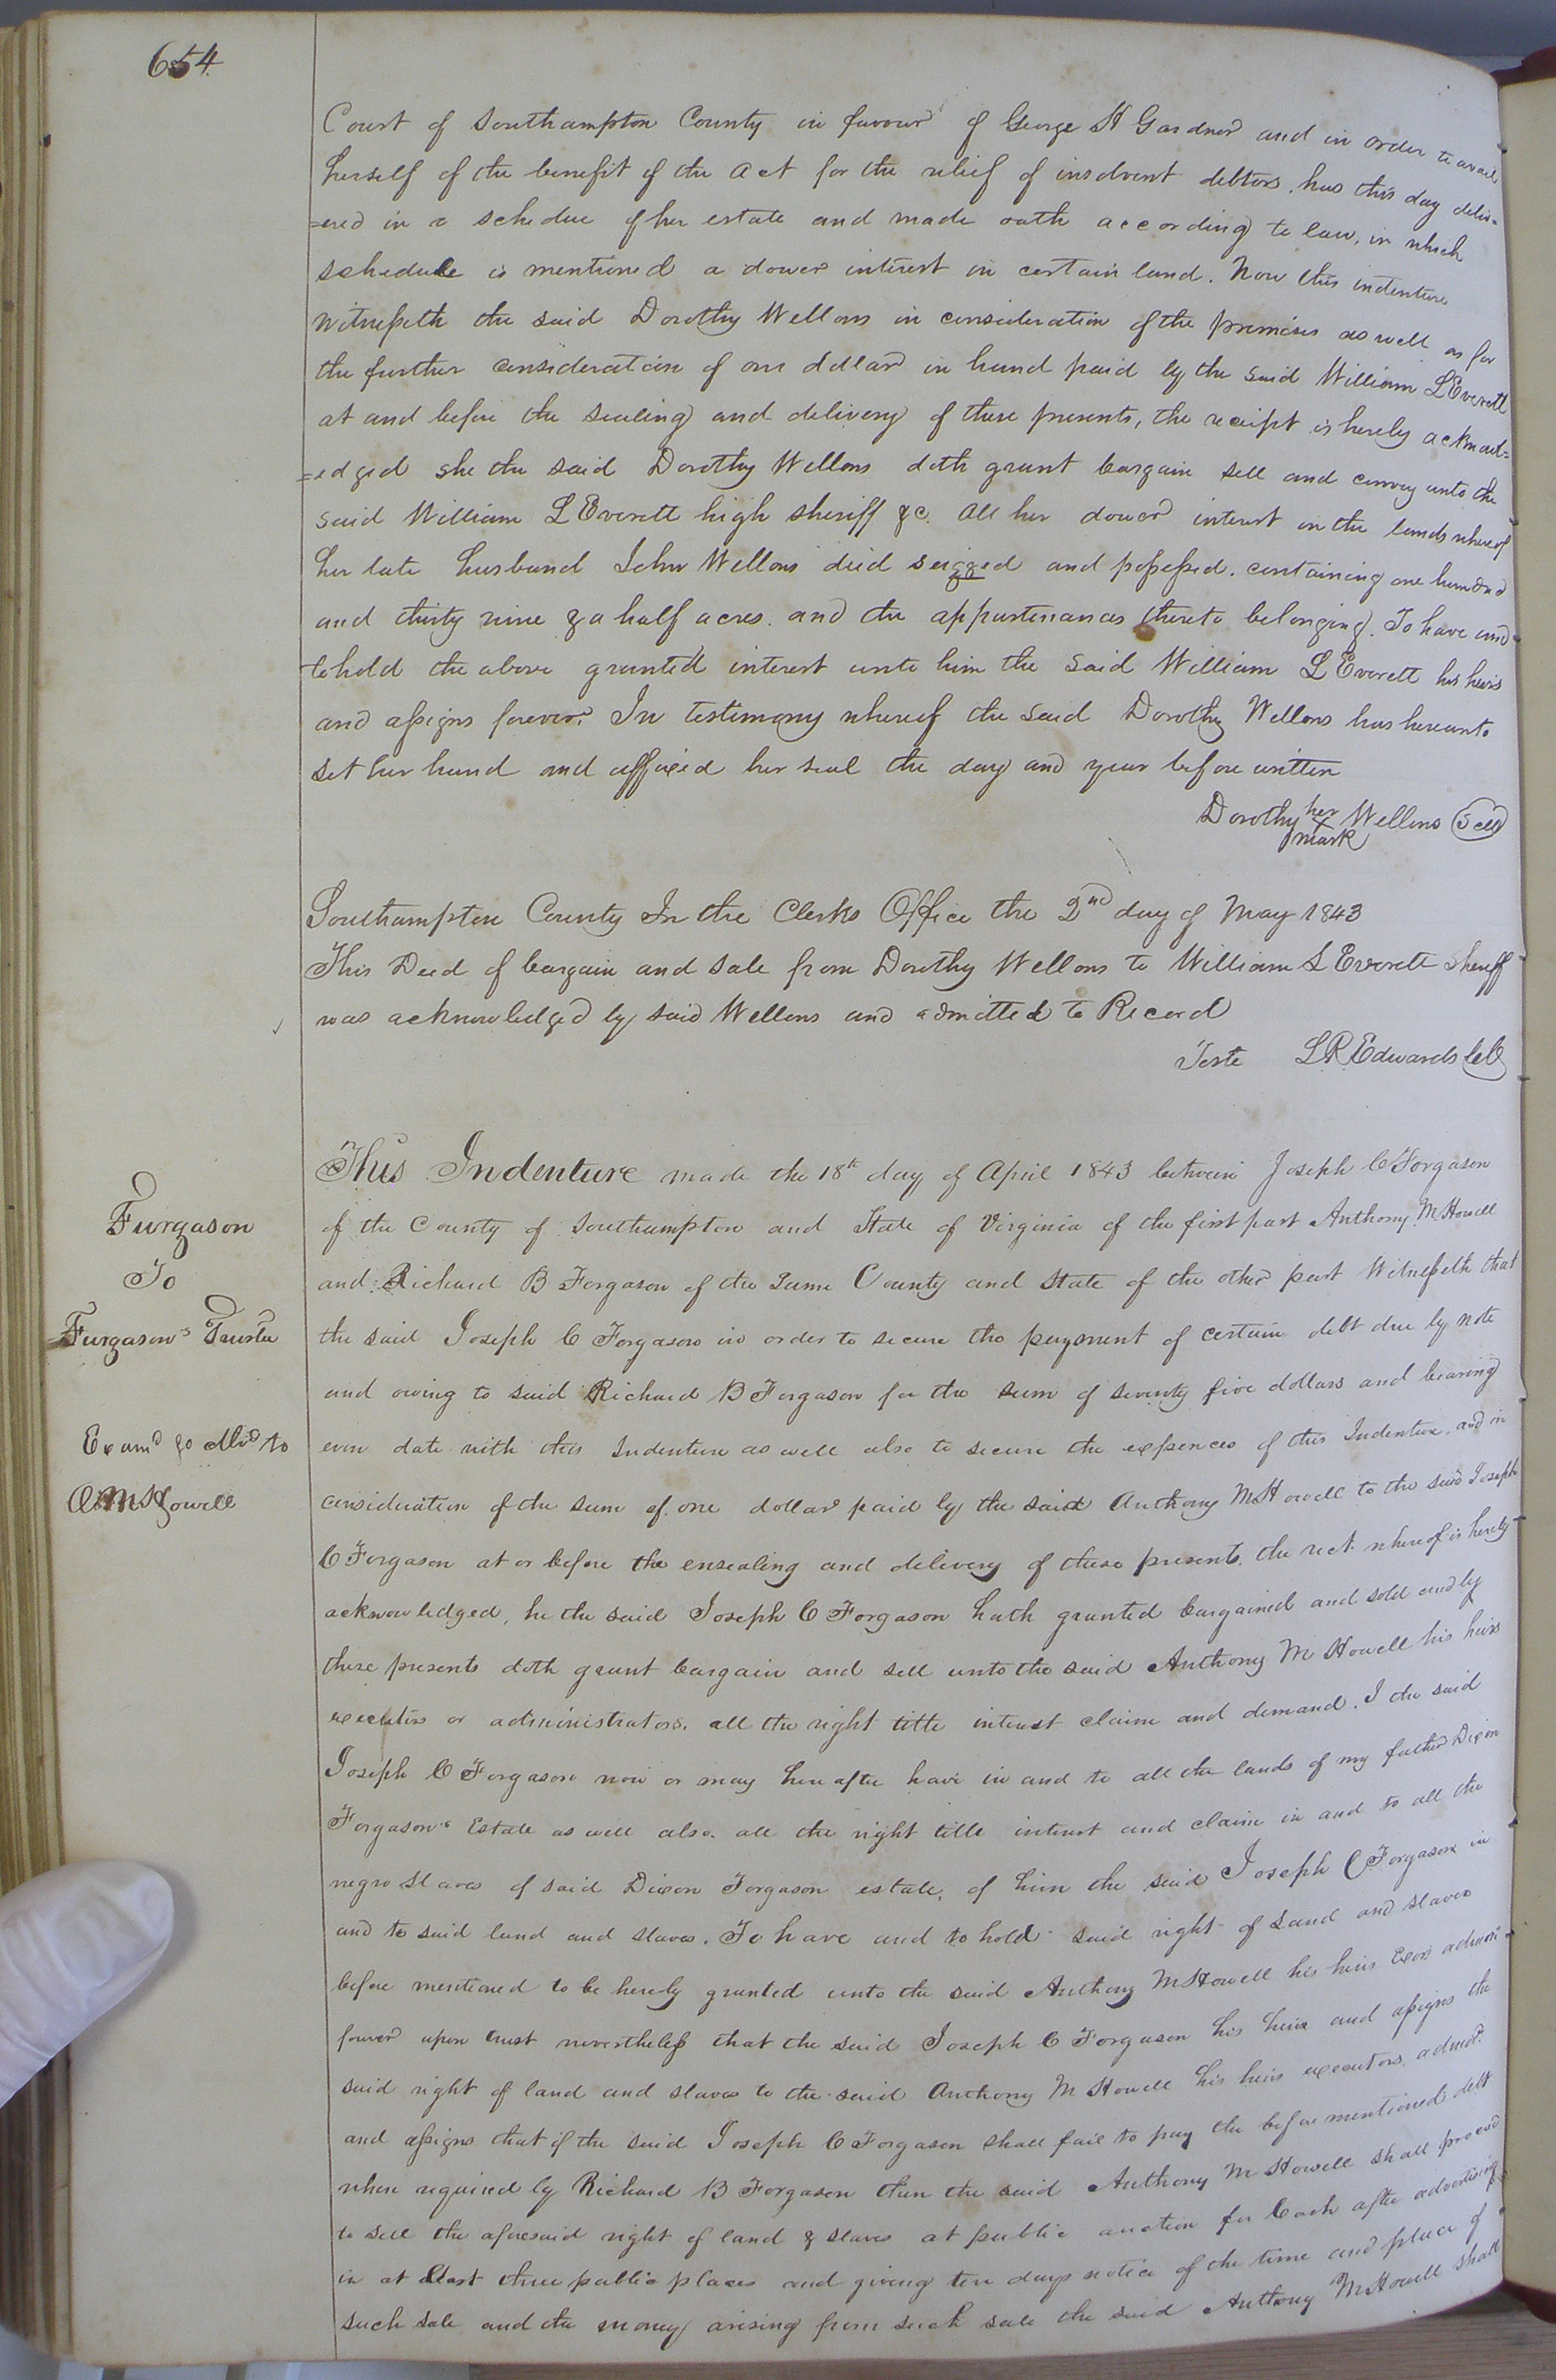 654
Court of Southampton County in favour of George H Gardner and in order to avail
herself of the benefit of the act for the relief of insolvent debtors, has this day deliv=
=ered in a schedue of her estate and made oath according to law, in which
schedule is mentioned a dower interest in certain land. Now this indenture
witnesseth the said Dorothy Wellons in consideration of the premises as well as for
the further consideration of one dollar in hand paid by the said William L Everett
at and before the sealing and delivery of these presents, the receipt is hereby acknowl=
=edged she the said Dorothy Wellons doth grant bargain sell and convey unto the
said William L Everett high sheriff &c. all her dower interest in the lands whereof
her late husband John Wellons died seizzed and possessed. containing one hundred
and thirty nine & a half acres. and the appurtenances thereto belonging. To have and
to hold the above granted interest unto him the said William L Everett his heirs
and assigns forever. In testimony whereof the said Dorothy Wellons has hereunto
set her hand and affixed her seal the day and year before written
Dorothy her X mark Wellons Seal
Southampton County In the Clerks Office the 2nd day of May 1843
This Deed of bargain and sale from Dorothy Wellons to William L Everett Sheriff
was acknowledged by said Wellons and admitted to Record
Teste L R Edwards CC
Furgason
To
Furgason's Trustee
Examd & Mld to
A M Howell
This Indenture made the 18th day of April 1843 between Joseph C Forgason
of the County of Southampton and State of Virginia of the first part Anthony M Howell
and Richard B Forgason of the Same County and State of the other part Witnesseth that
the said Joseph C Forgason in order to secure the payment of certain debt due by note
and owing to said Richard B Forgason for the sum of seventy five dollars and bearing
even date with this Indenture as well also to secure the expences of this Indenture, and in
consideration of the sum of one dollar paid by the said Anthony M Howell to the said Joseph
C Forgason at or before the ensealing and delivery of these presents. the rect. whereof is hereby
acknowledged, he the said Joseph C Forgason hath granted bargained and sold and by
these presents doth grant bargain and sell unto the said Anthony M Howell his heirs
executors or administrators. all the right title interest claim and demand. I the said
Joseph C Forgason now or may hereafter have in and to all the lands of my father Dixon
Forgason's Estate as well also. all the right title interest and claim in and to all the
negro slaves of said Dixon Forgason estate, of him the said Joseph C Forgason in
and to said land and slaves. To have and to hold said right of Land and slaves
before mentioned to be hereby granted unto the said Anthony M Howell his heirs Exors admors
forever upon trust nevertheless that the said Joseph C Forgason his heirs and assigns the
said right of land and slaves to the said Anthony M Howell his heirs executors, admors.
and assigns that if the said Joseph C Forgason shall fail to pay the before mentioned debt
when required by Richard B Forgason then the said Anthony M Howell shall proceed
to sell the aforesaid right of land & slaves at public auction for Cash after advertising
in at least three public places and giving ten days notice of the time and place of
such sale and the money arising from such sale the said Anthony M Howell shall